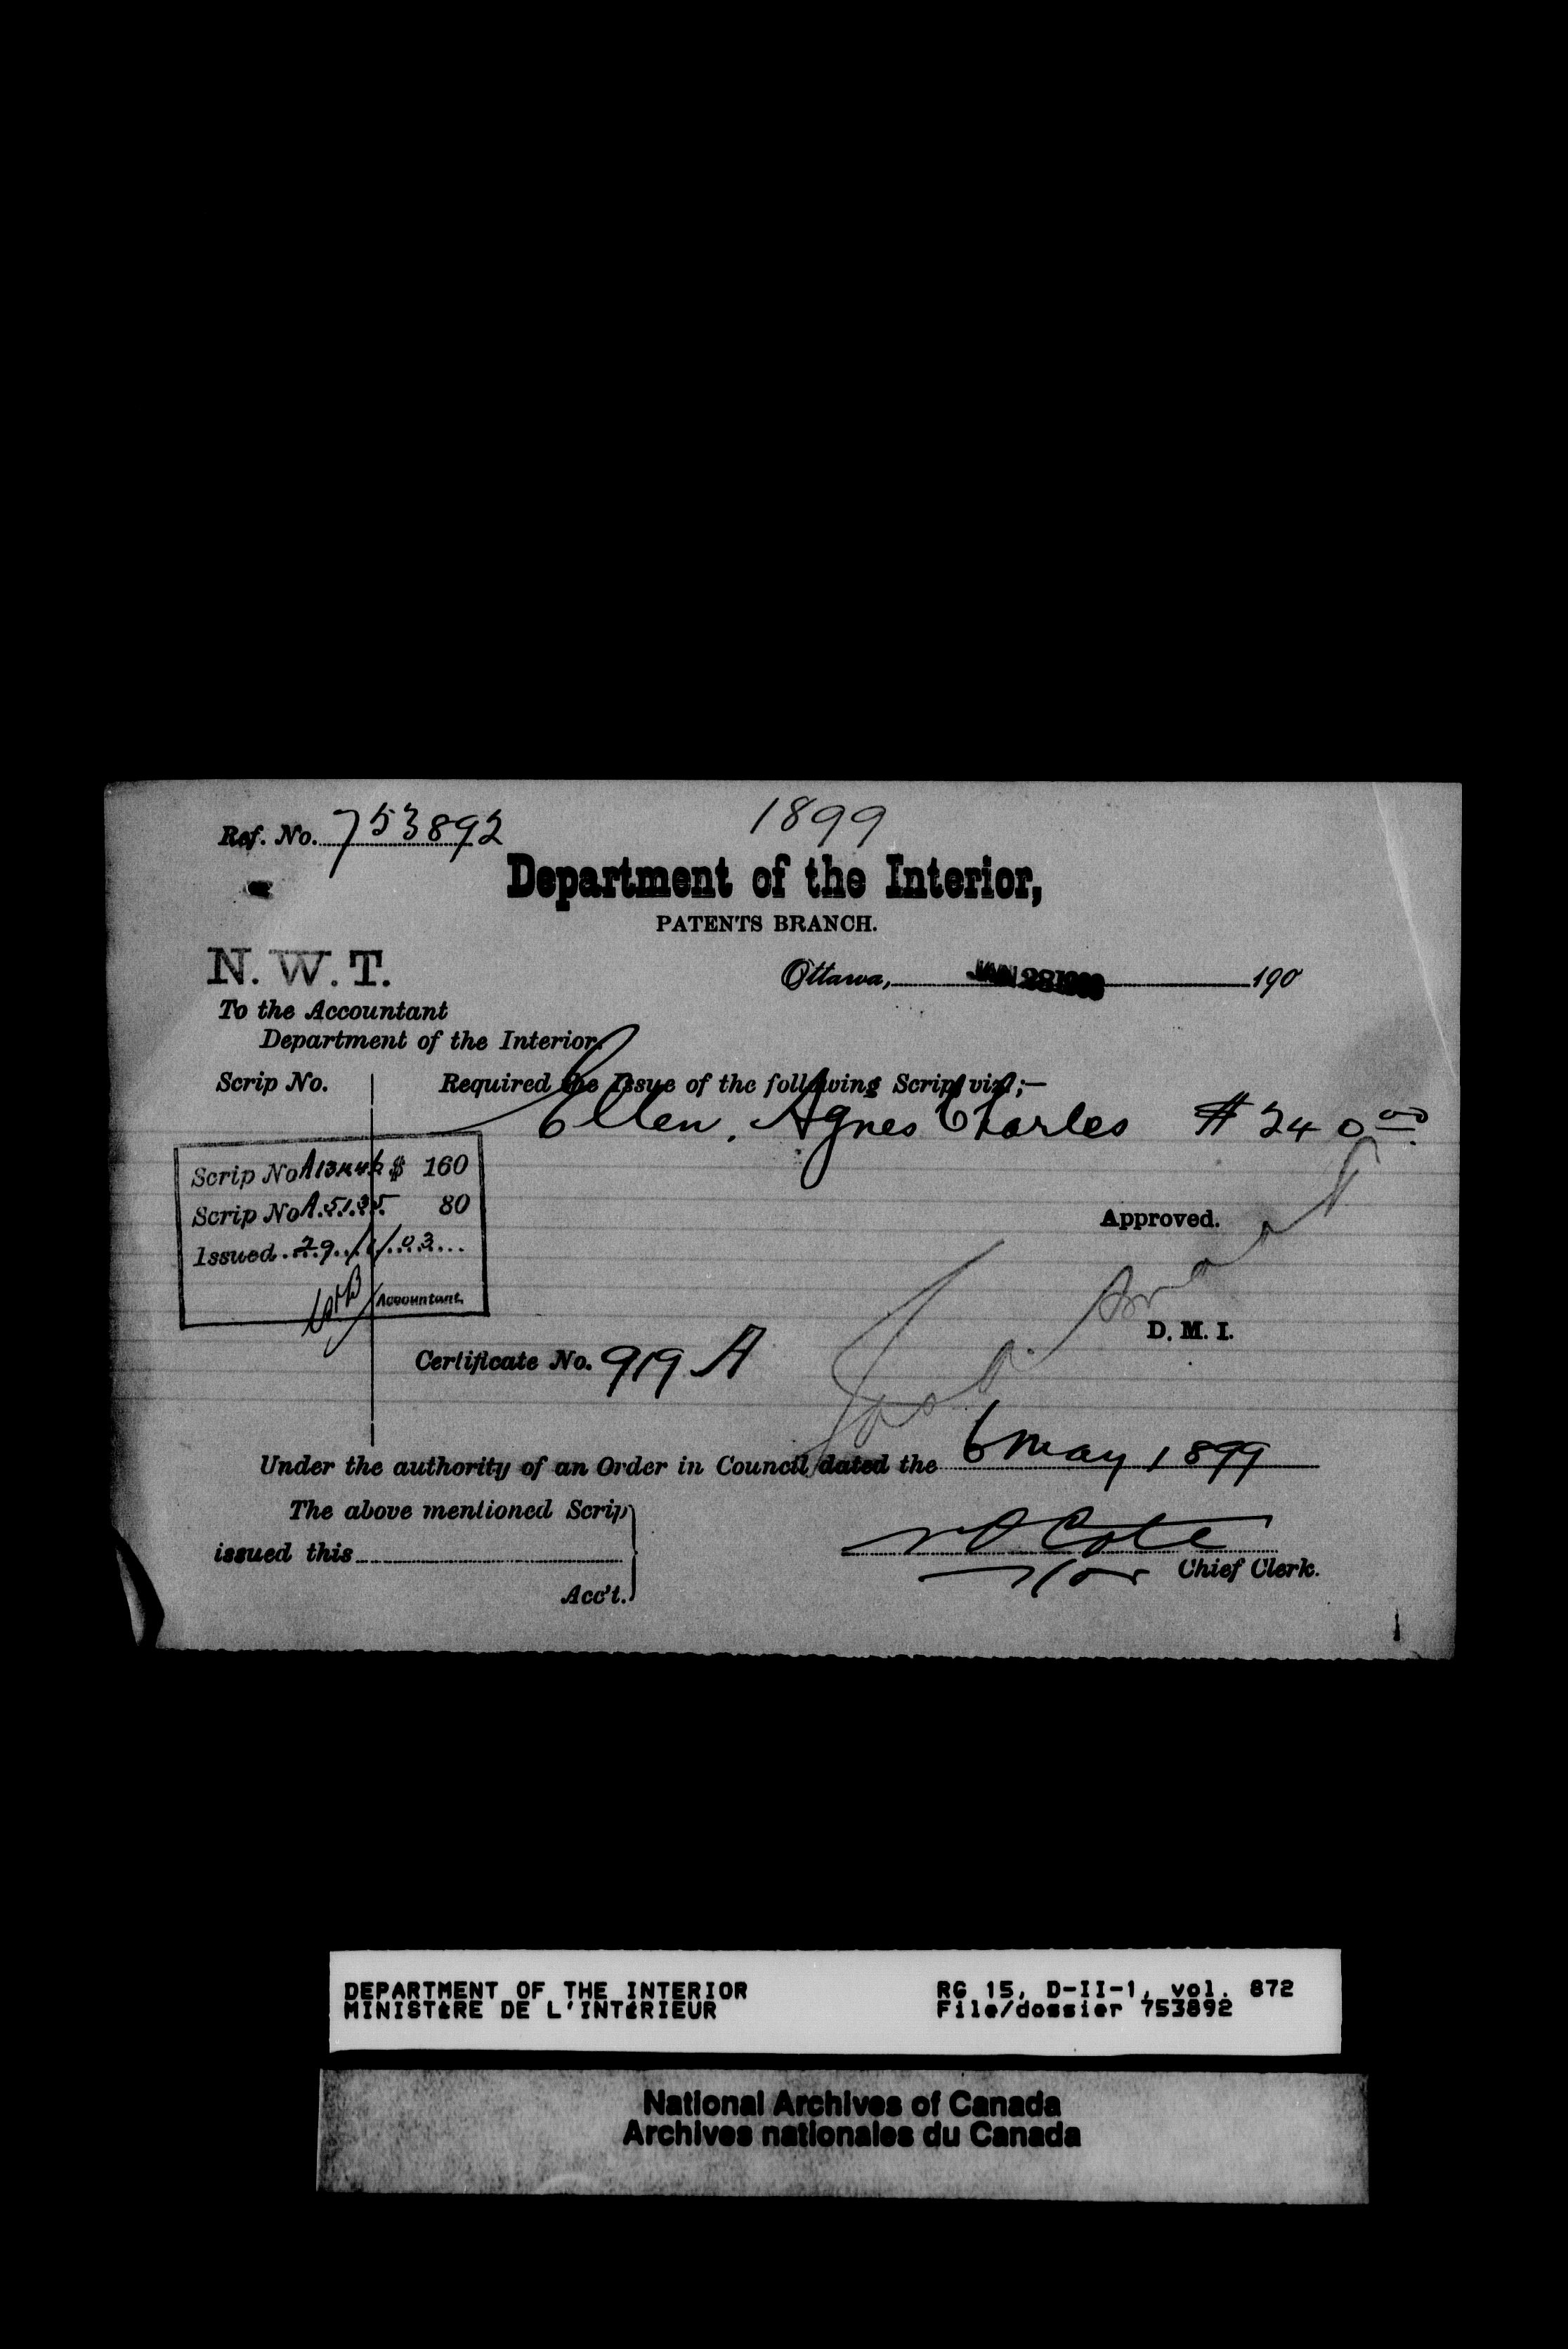 Ref. No. 753892
1899
Department of the Interior,
PATENTS BRANCH.
N. W. T.
Ottawa, JAN 28 1903 190
To the Accountant
Department of the Interior.
Scrip No. Required the Issue of the following Scrip viz;—
Ellen. Agnes Charles $ 240 00
Scrip No $ 160
Scrip No A.5135 80
Issued 29/1/03
Accountant.
Approved.
D. M. I.
Certificate No. 919 A
Under the authority of an Order in Council dated the 6 May 1899
The above mentioned Scrip
issued this
Acc't.
N O Cote
for Chief Clerk.
DEPARTMENT OF THE INTERIOR RG 15, D-II-1, vol. 872
MINISTÈRE DE L'INTÉRIEUR File/dossier 753892
National Archives of Canada
Archives nationales du Canada